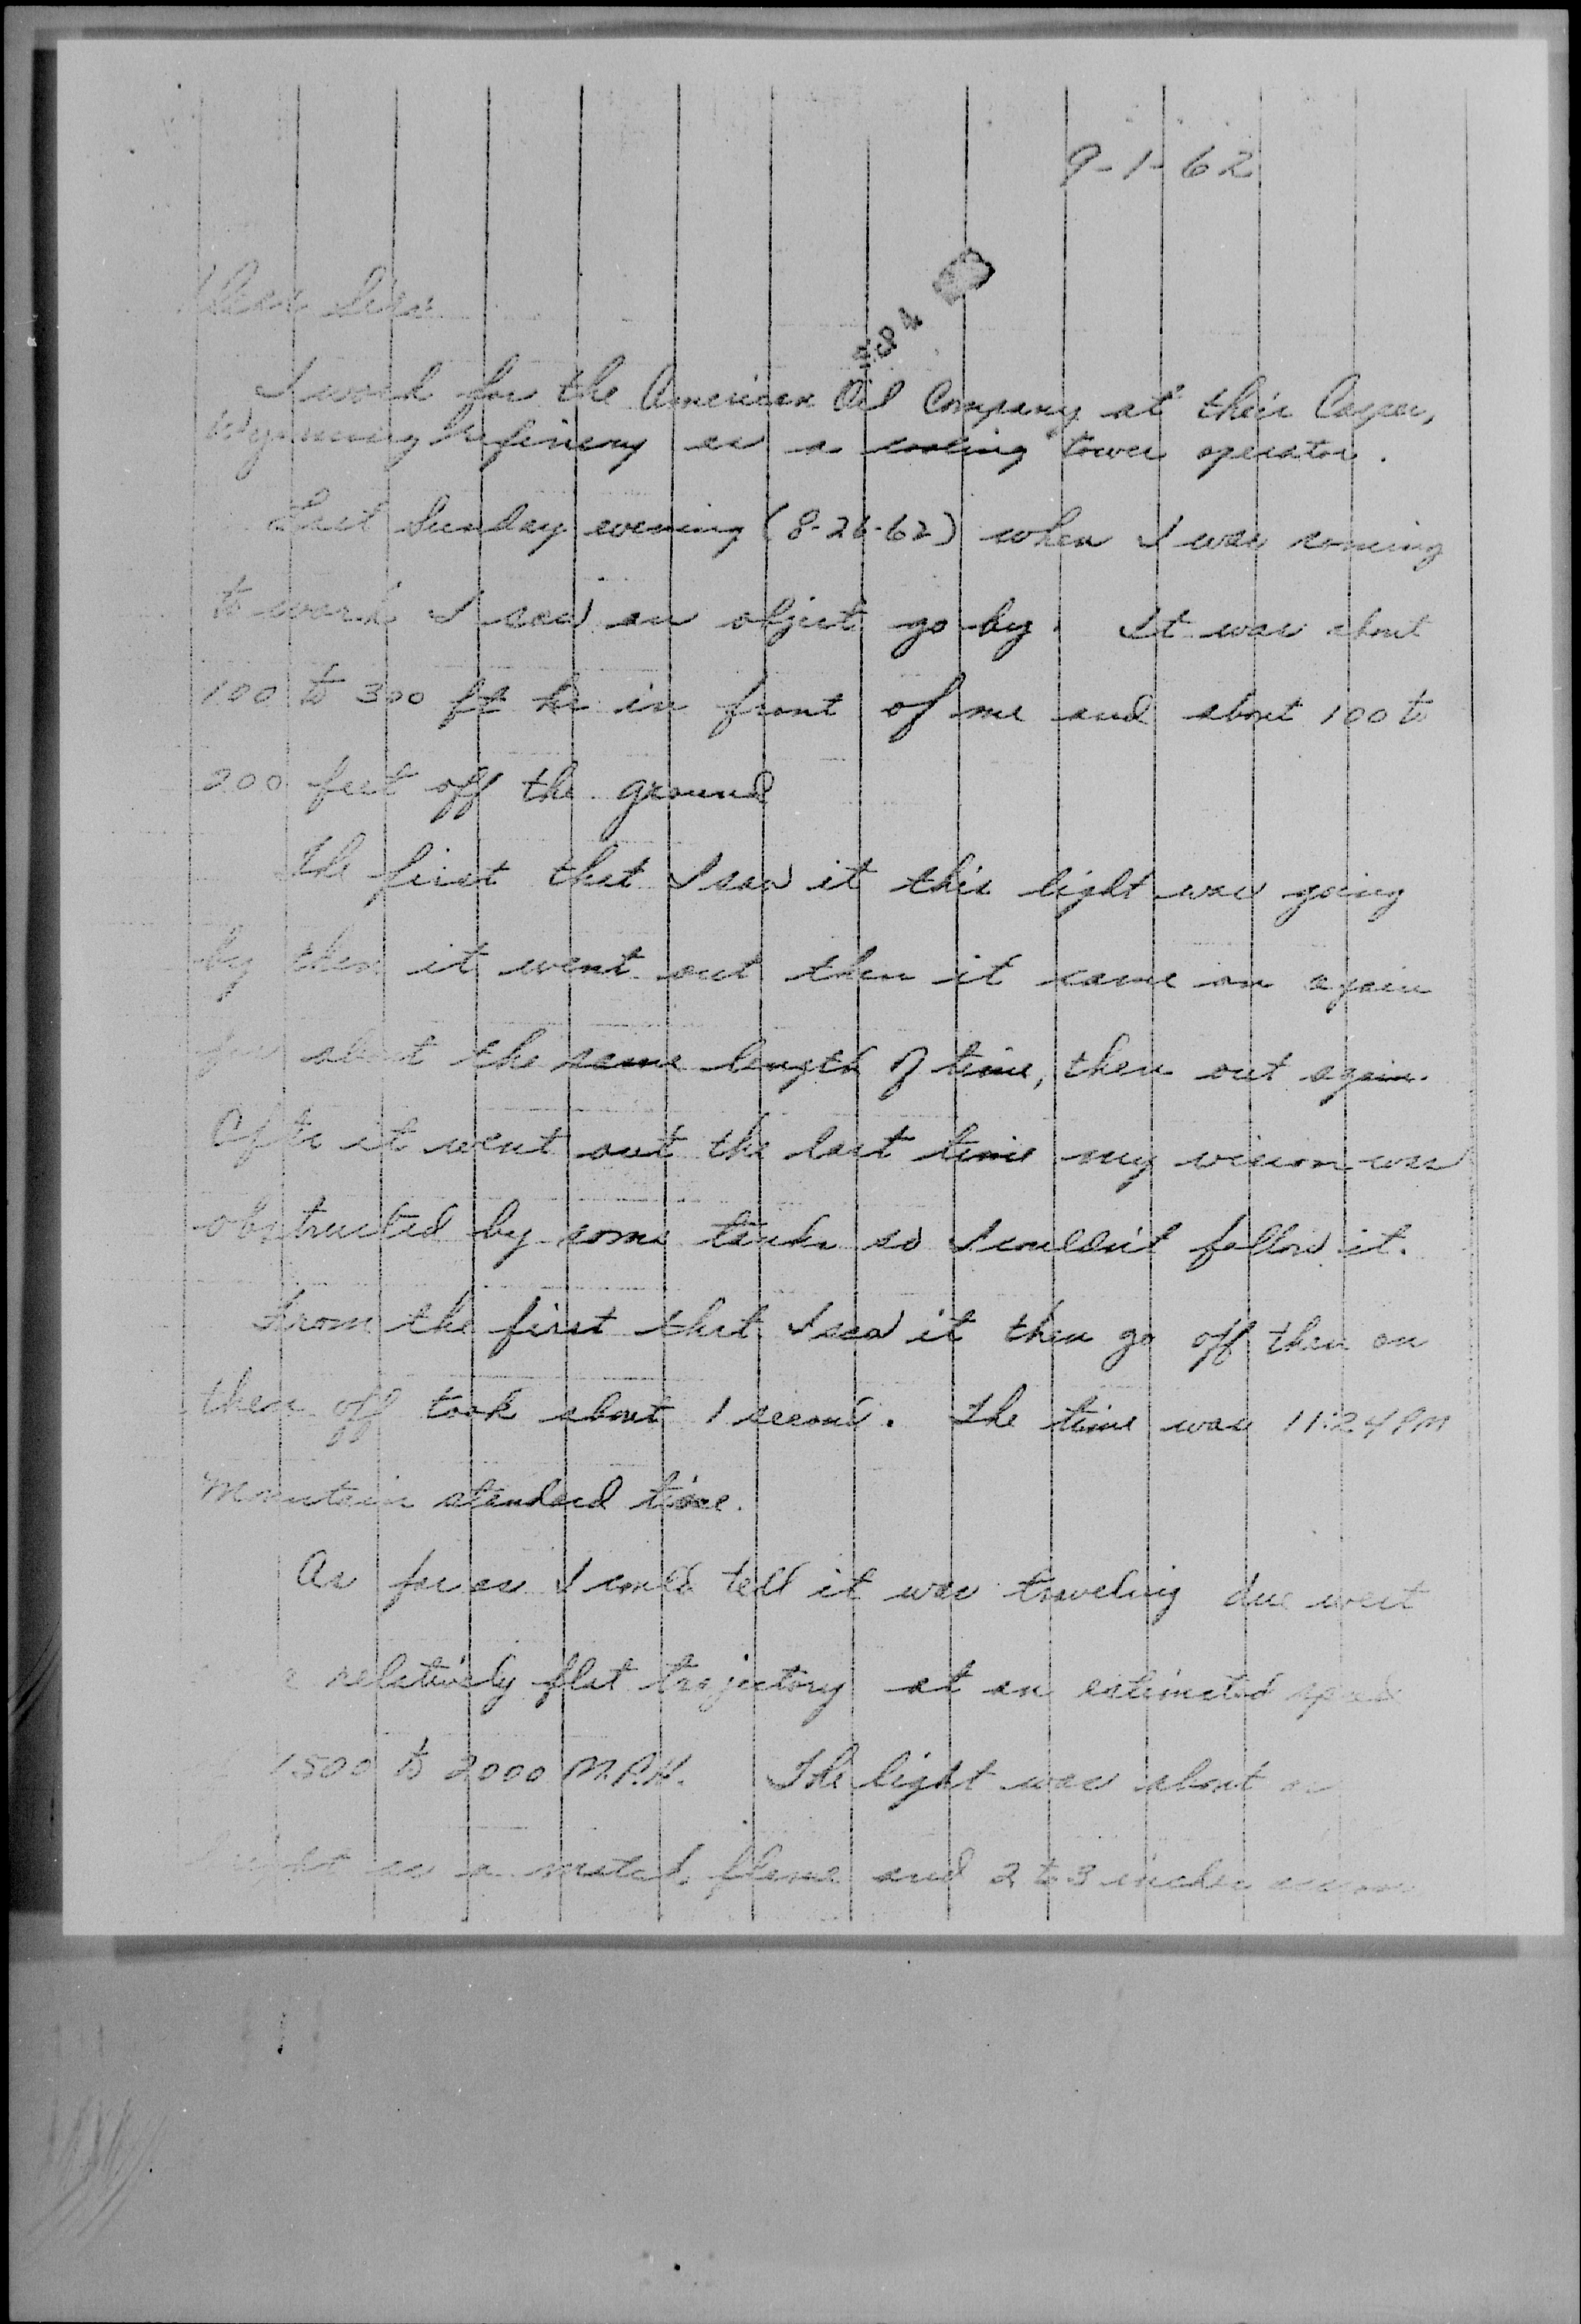 9-1-62
Dear Sirs
I work for the American Oil Company at their Casper,
Wyoming Refinery as a cooling tower operator.
Last Sunday evening (8-26-62) when I was coming
to work I saw an object go by. It was about
100 to 300 ft in front of me and about 100 to
200 feet off the ground
The first that I saw it this light was going
by then it went out then it came on again
for about the same length of time, then out again.
After it went out the last time my vision was
obstructed by some tanks so I couldn't follow it.
From the first that I saw it then go off then on
then off took about 1 second. The time was 11:24 PM
Mountain standard time.
As far as I could tell it was traveling due west
relatively flat trajectory at an estimated speed
1500 to 2000 M.P.H. The light was about as
bright as a match flame and 2 to 3 inches across